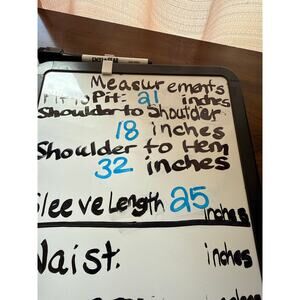 EXPO
Measurements
Pit to Pit: 21 inches
Shoulder to Shoulder
18 inches
Shoulder to Hem
32 inches
Sleeve Length 25 inches
Waist: inches